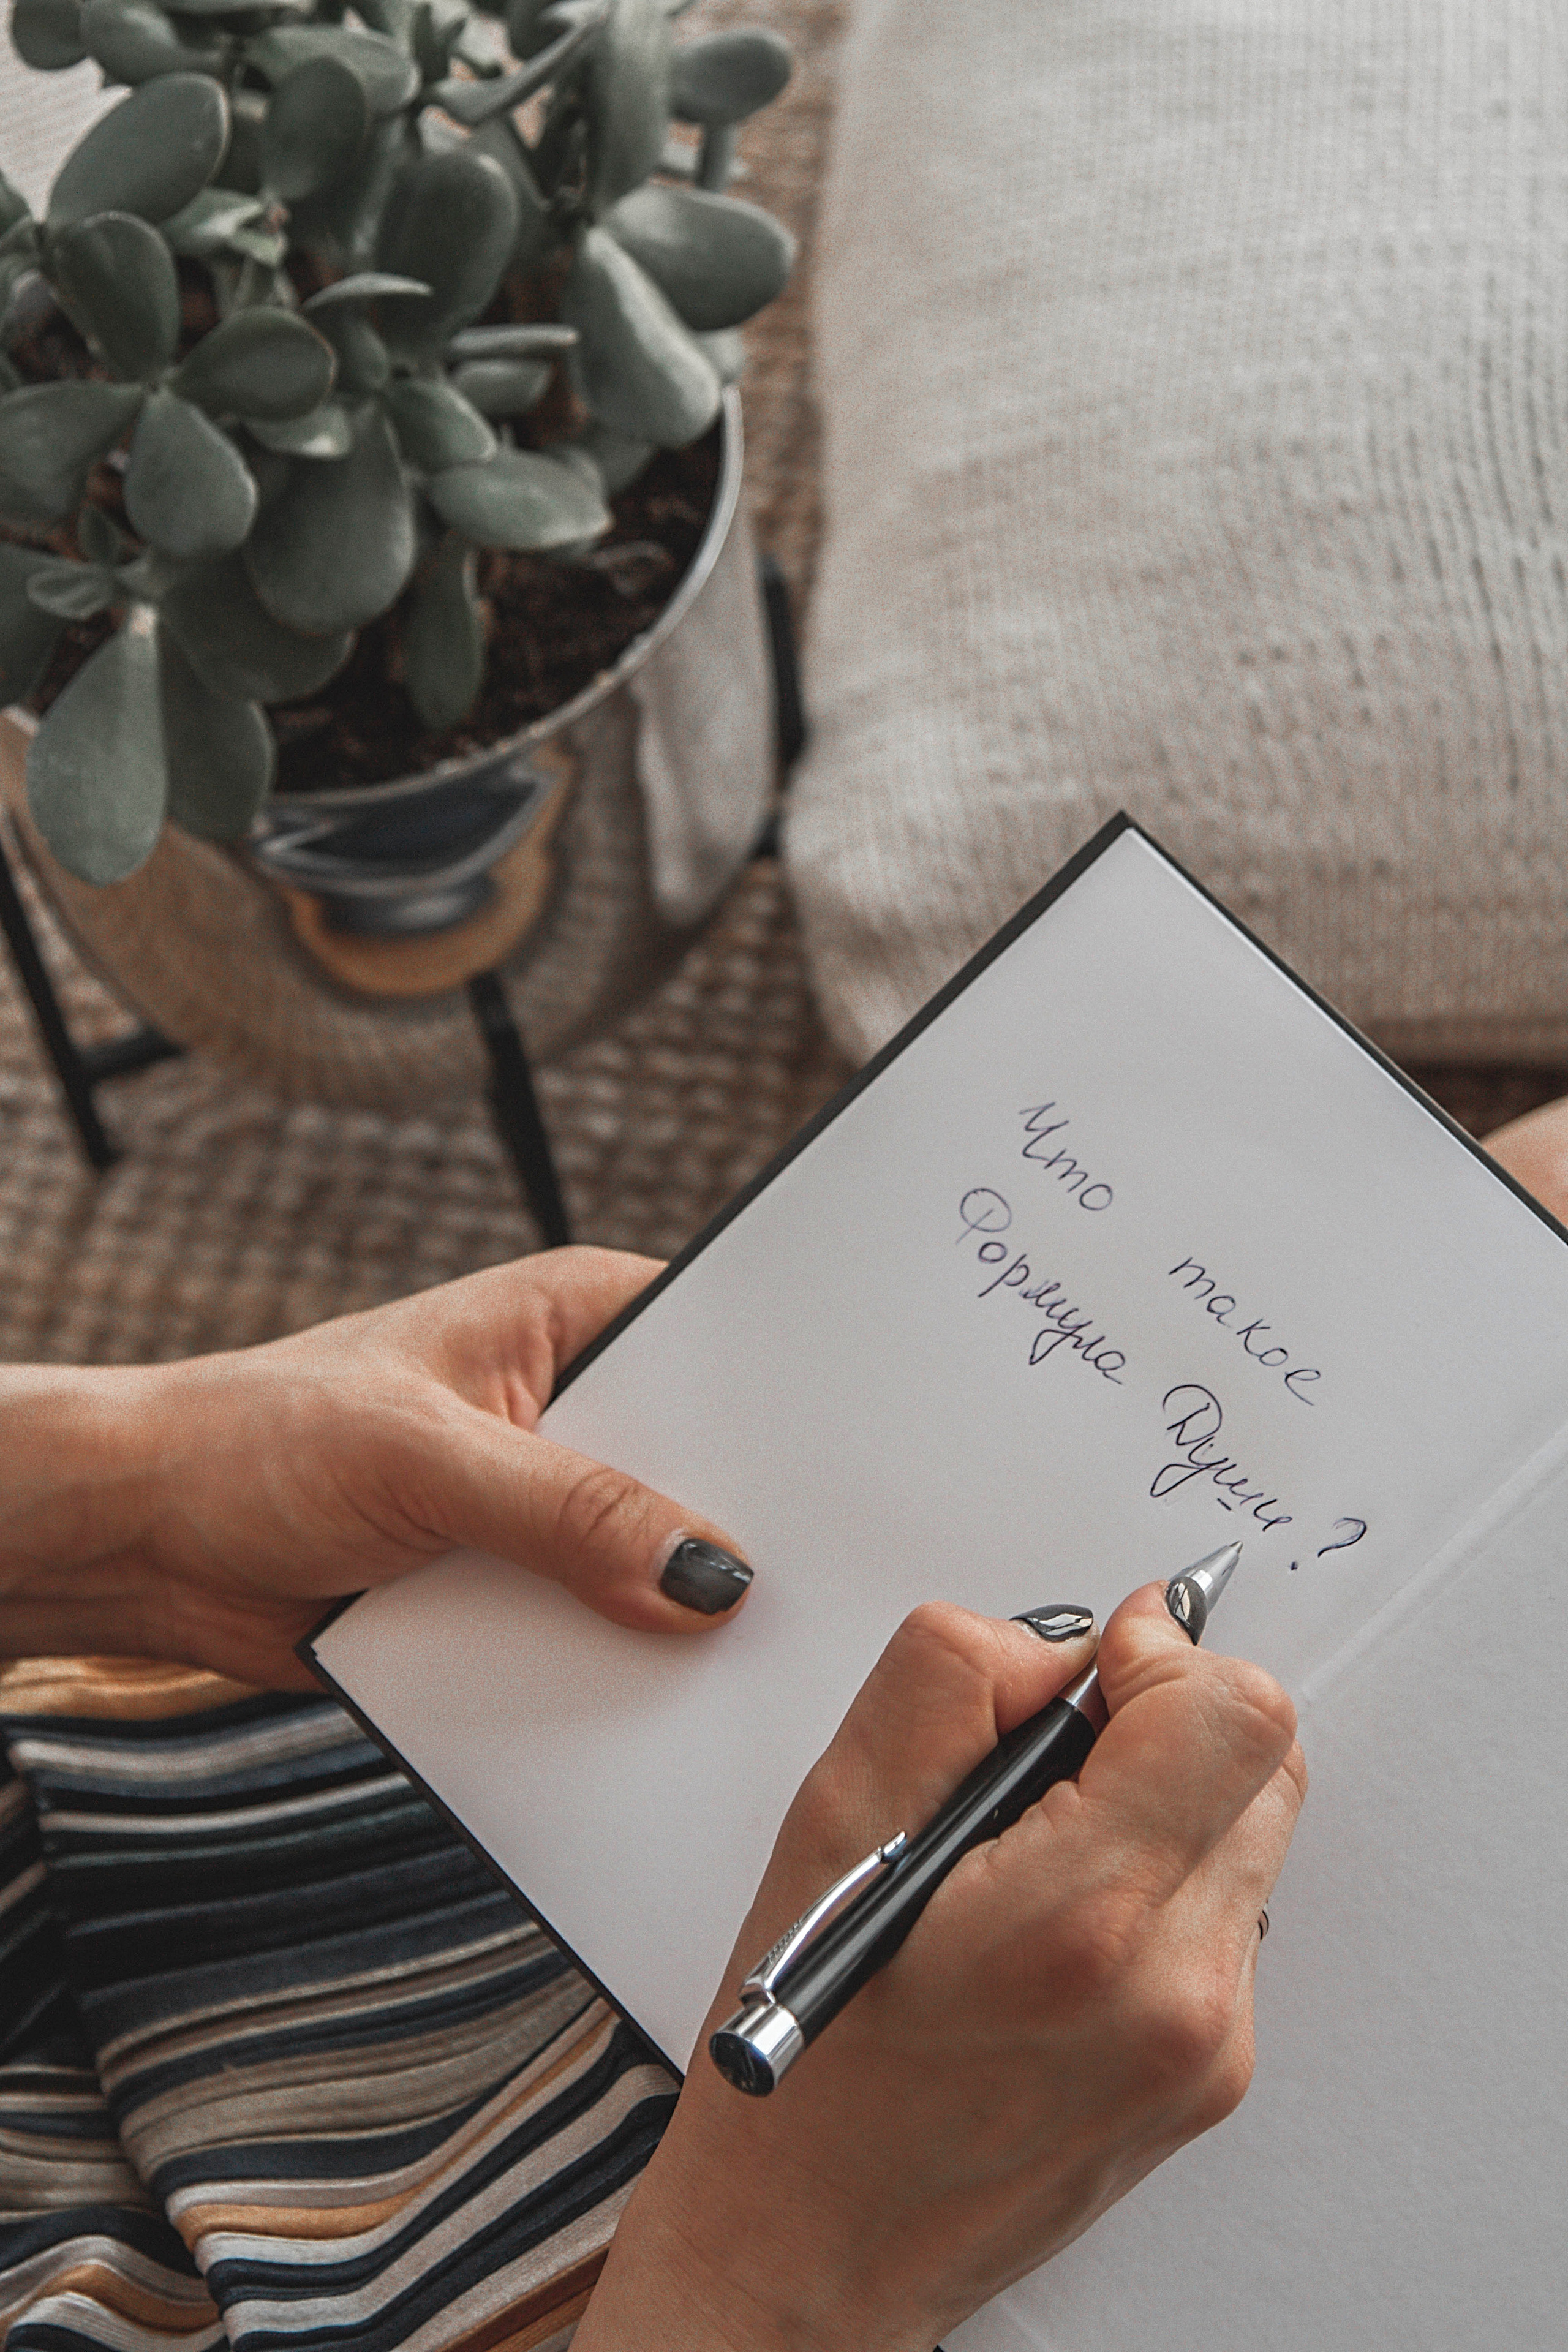 Что такое
Формула Души?